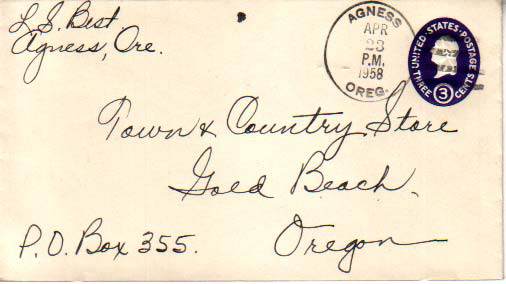 L. S. Best
Agness, Ore.
AGNESS
APR
23
P.M.
1958
OREG.
UNITED·STATES·POSTAGE
THREE 3 CENTS
Town & Country Store
Gold Beach,
P.O. Box 355.
Oregon